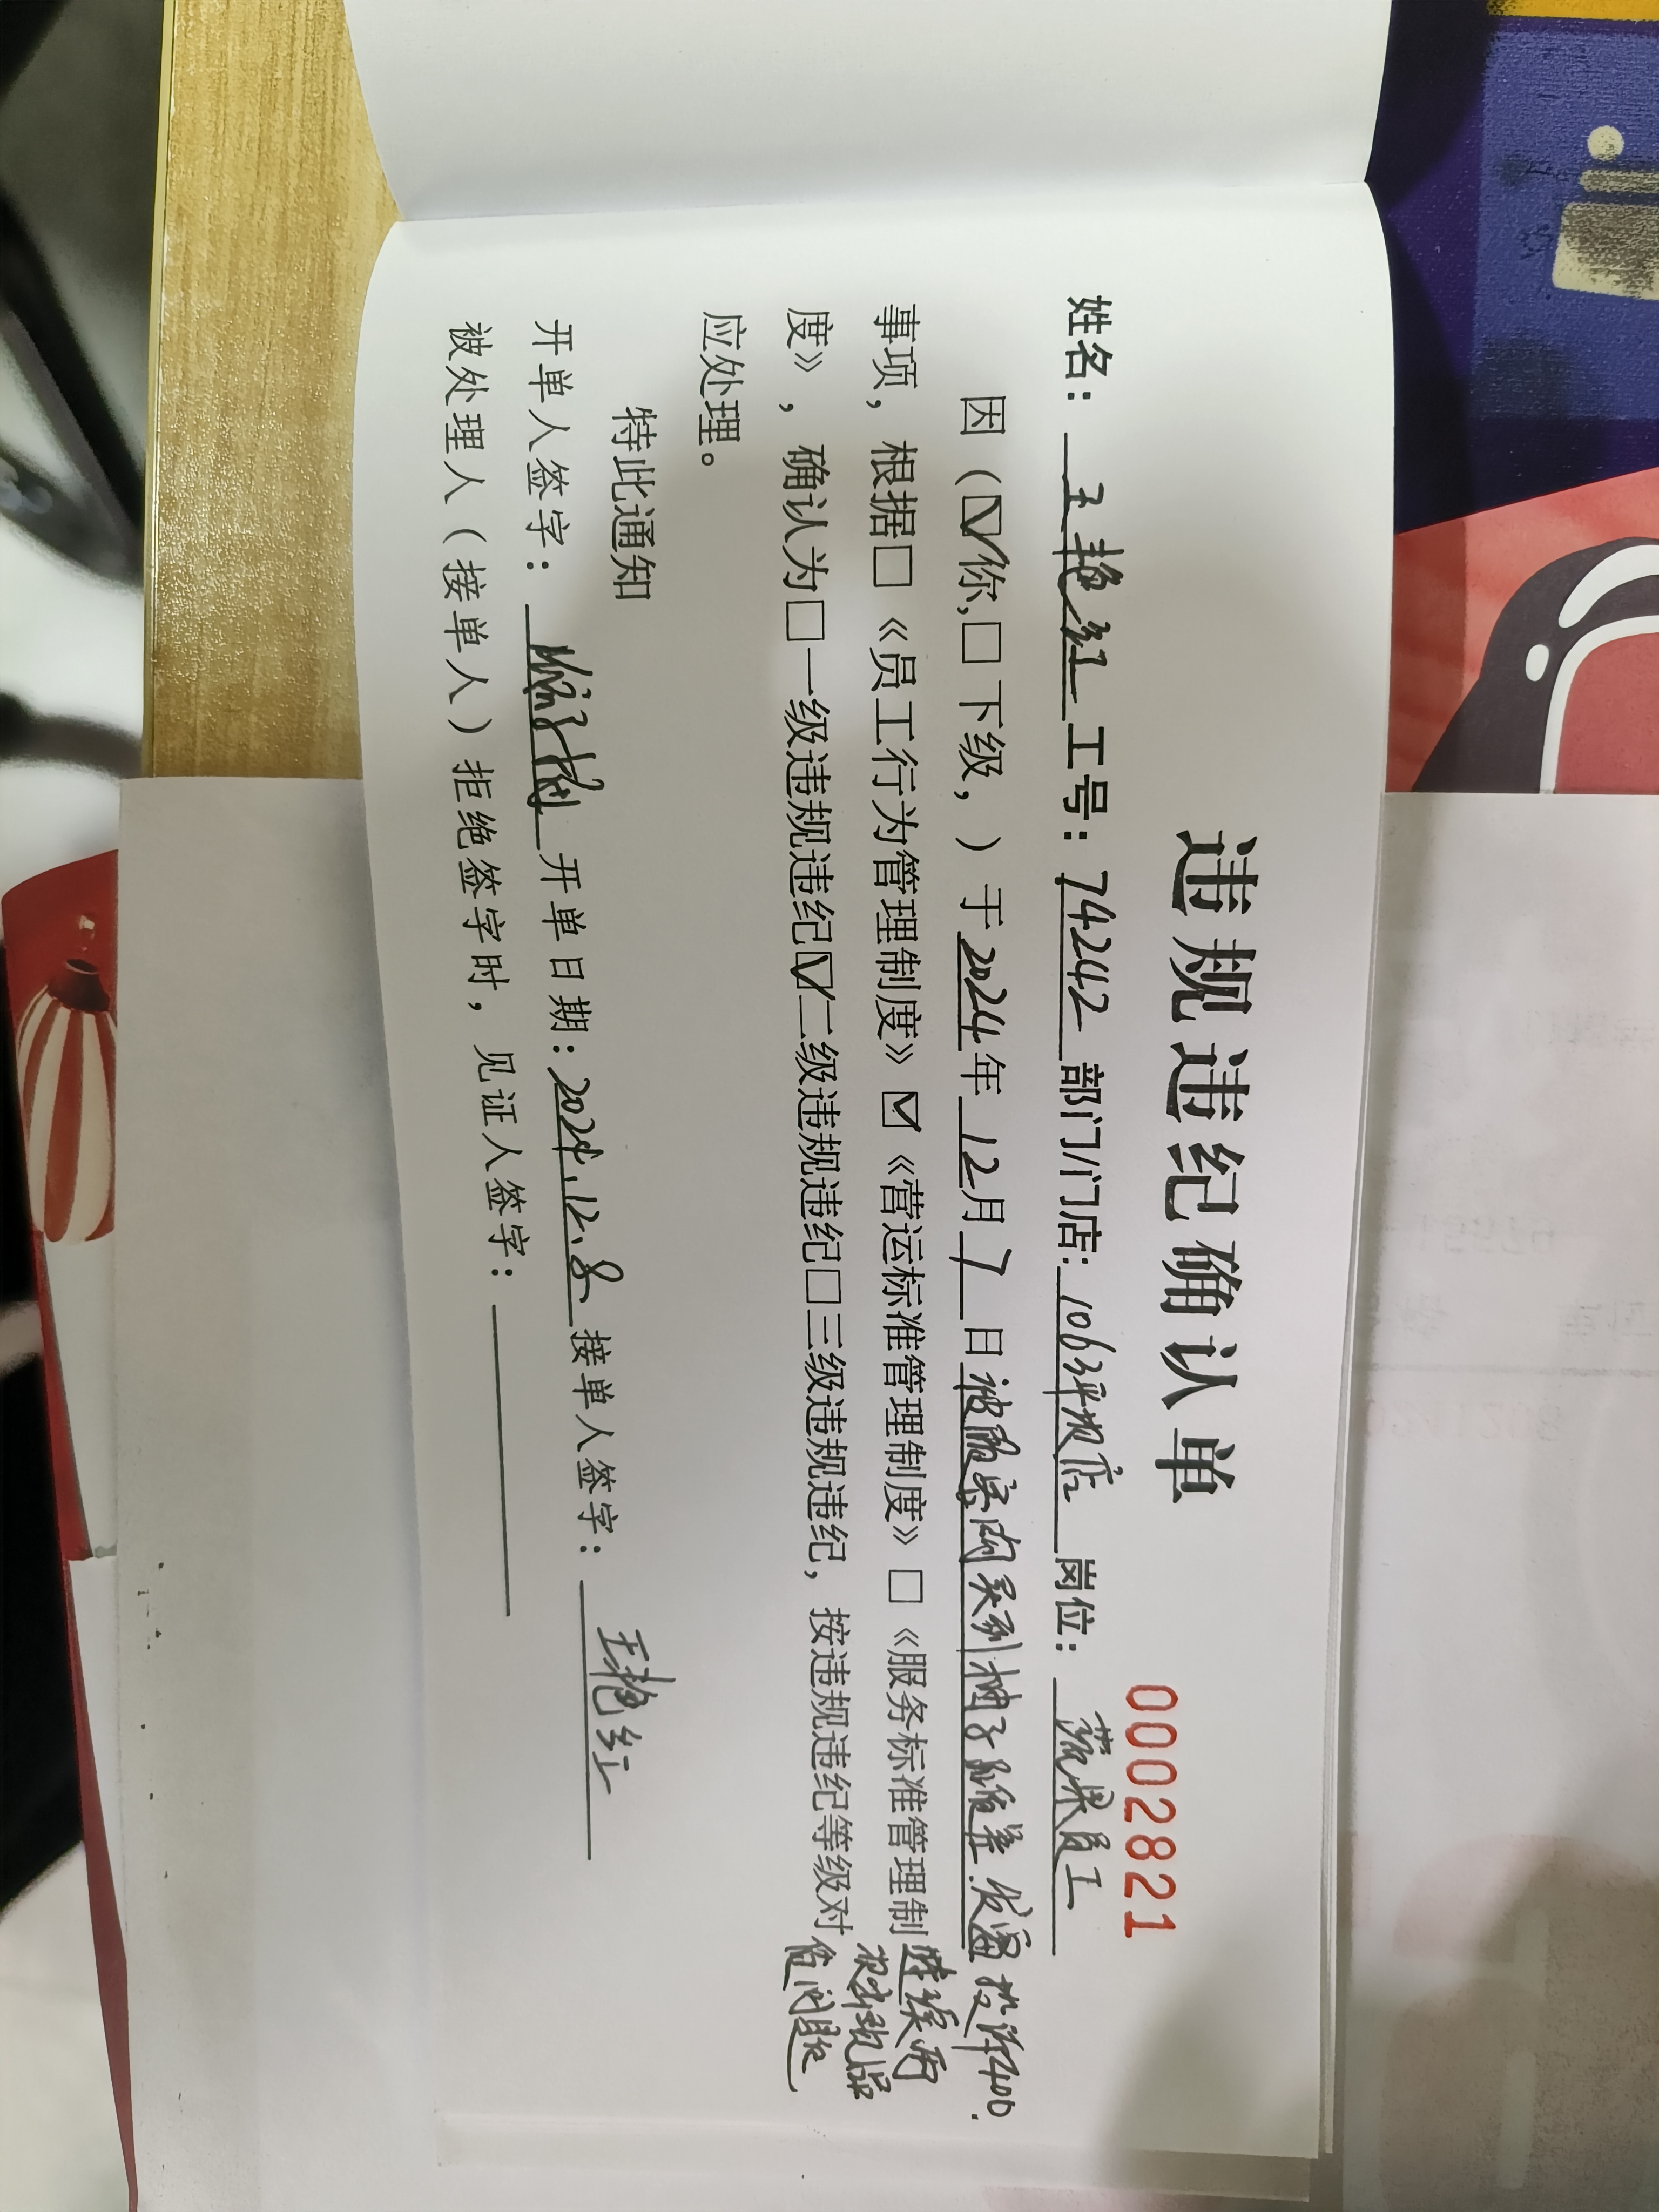 违规违纪确认单
0002821
姓名：王艳红工号：74242部门/门店：106坪坝店岗位：蔬果员工
因（☑你,□下级，）于2024年12月7日被顾客购买到柚子质差.发霉投诉400.
事项，根据□《员工行为管理制度》☑《营运标准管理制度》□《服务标准管理制
连续两
次出现品
质问题
度》，确认为□一级违规违纪☑二级违规违纪□三级违规违纪，按违规违纪等级对
应处理。
特此通知
开单人签字：开单日期：2024.12.8接单人签字：王艳红
被处理人（接单人）拒绝签字时，见证人签字：